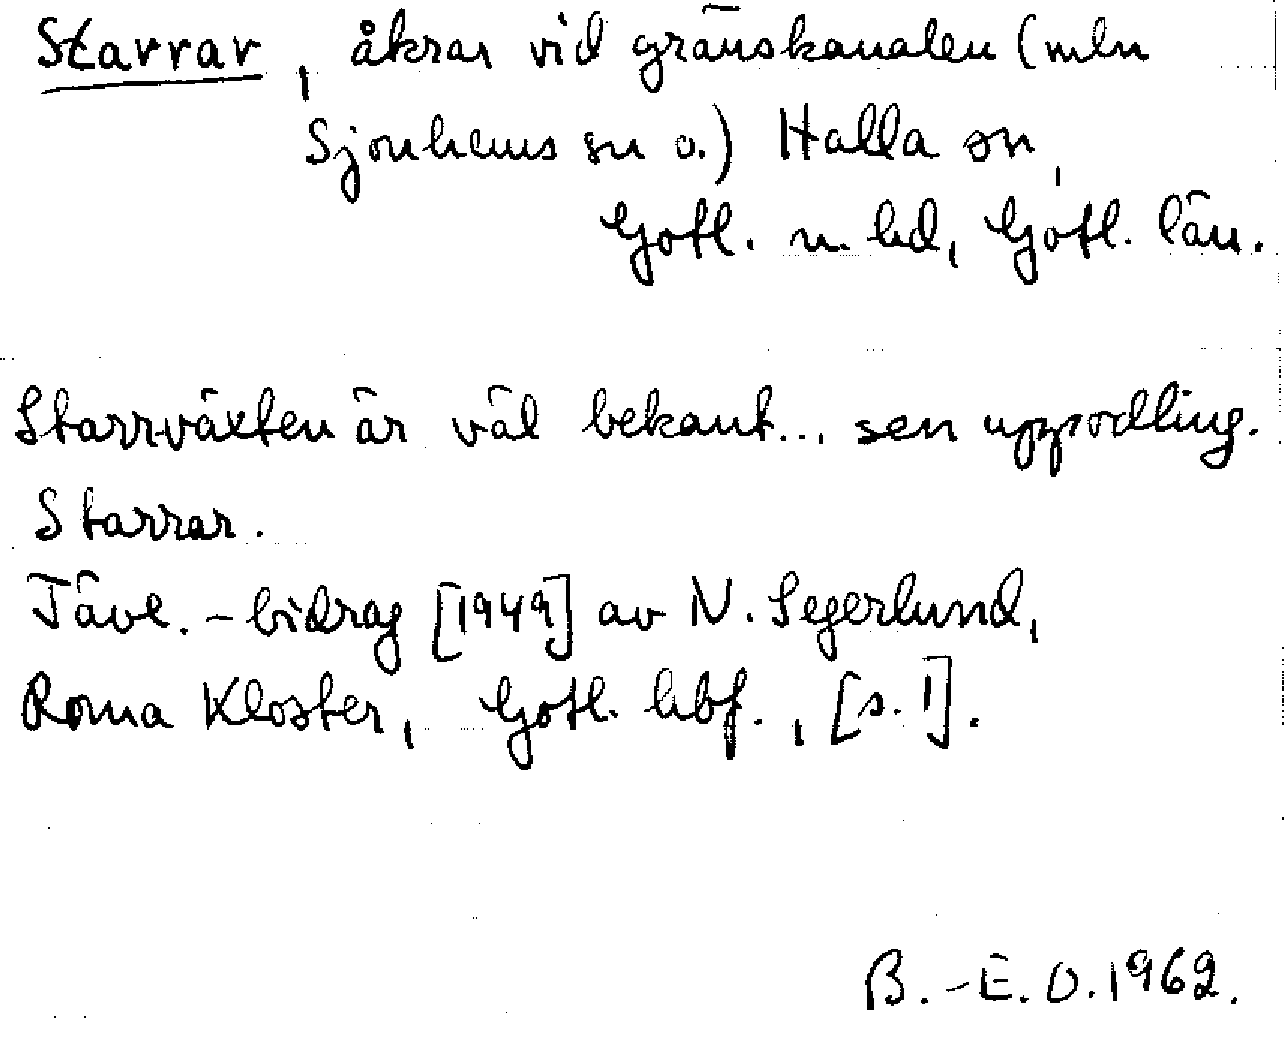 Starrar, åkrar vid gränskanalen (mln
Sjonhems sn o.) Halla sn,
Gotl. n. hd, Gotl. län.
Starrväxten är väl bekant... sen uppodling.
Starrar.
Tävl.-bidrag [1949] av N. Segerlund,
Roma Kloster, Gotl. hbf., [s. 1].
B.-E. O. 1962.